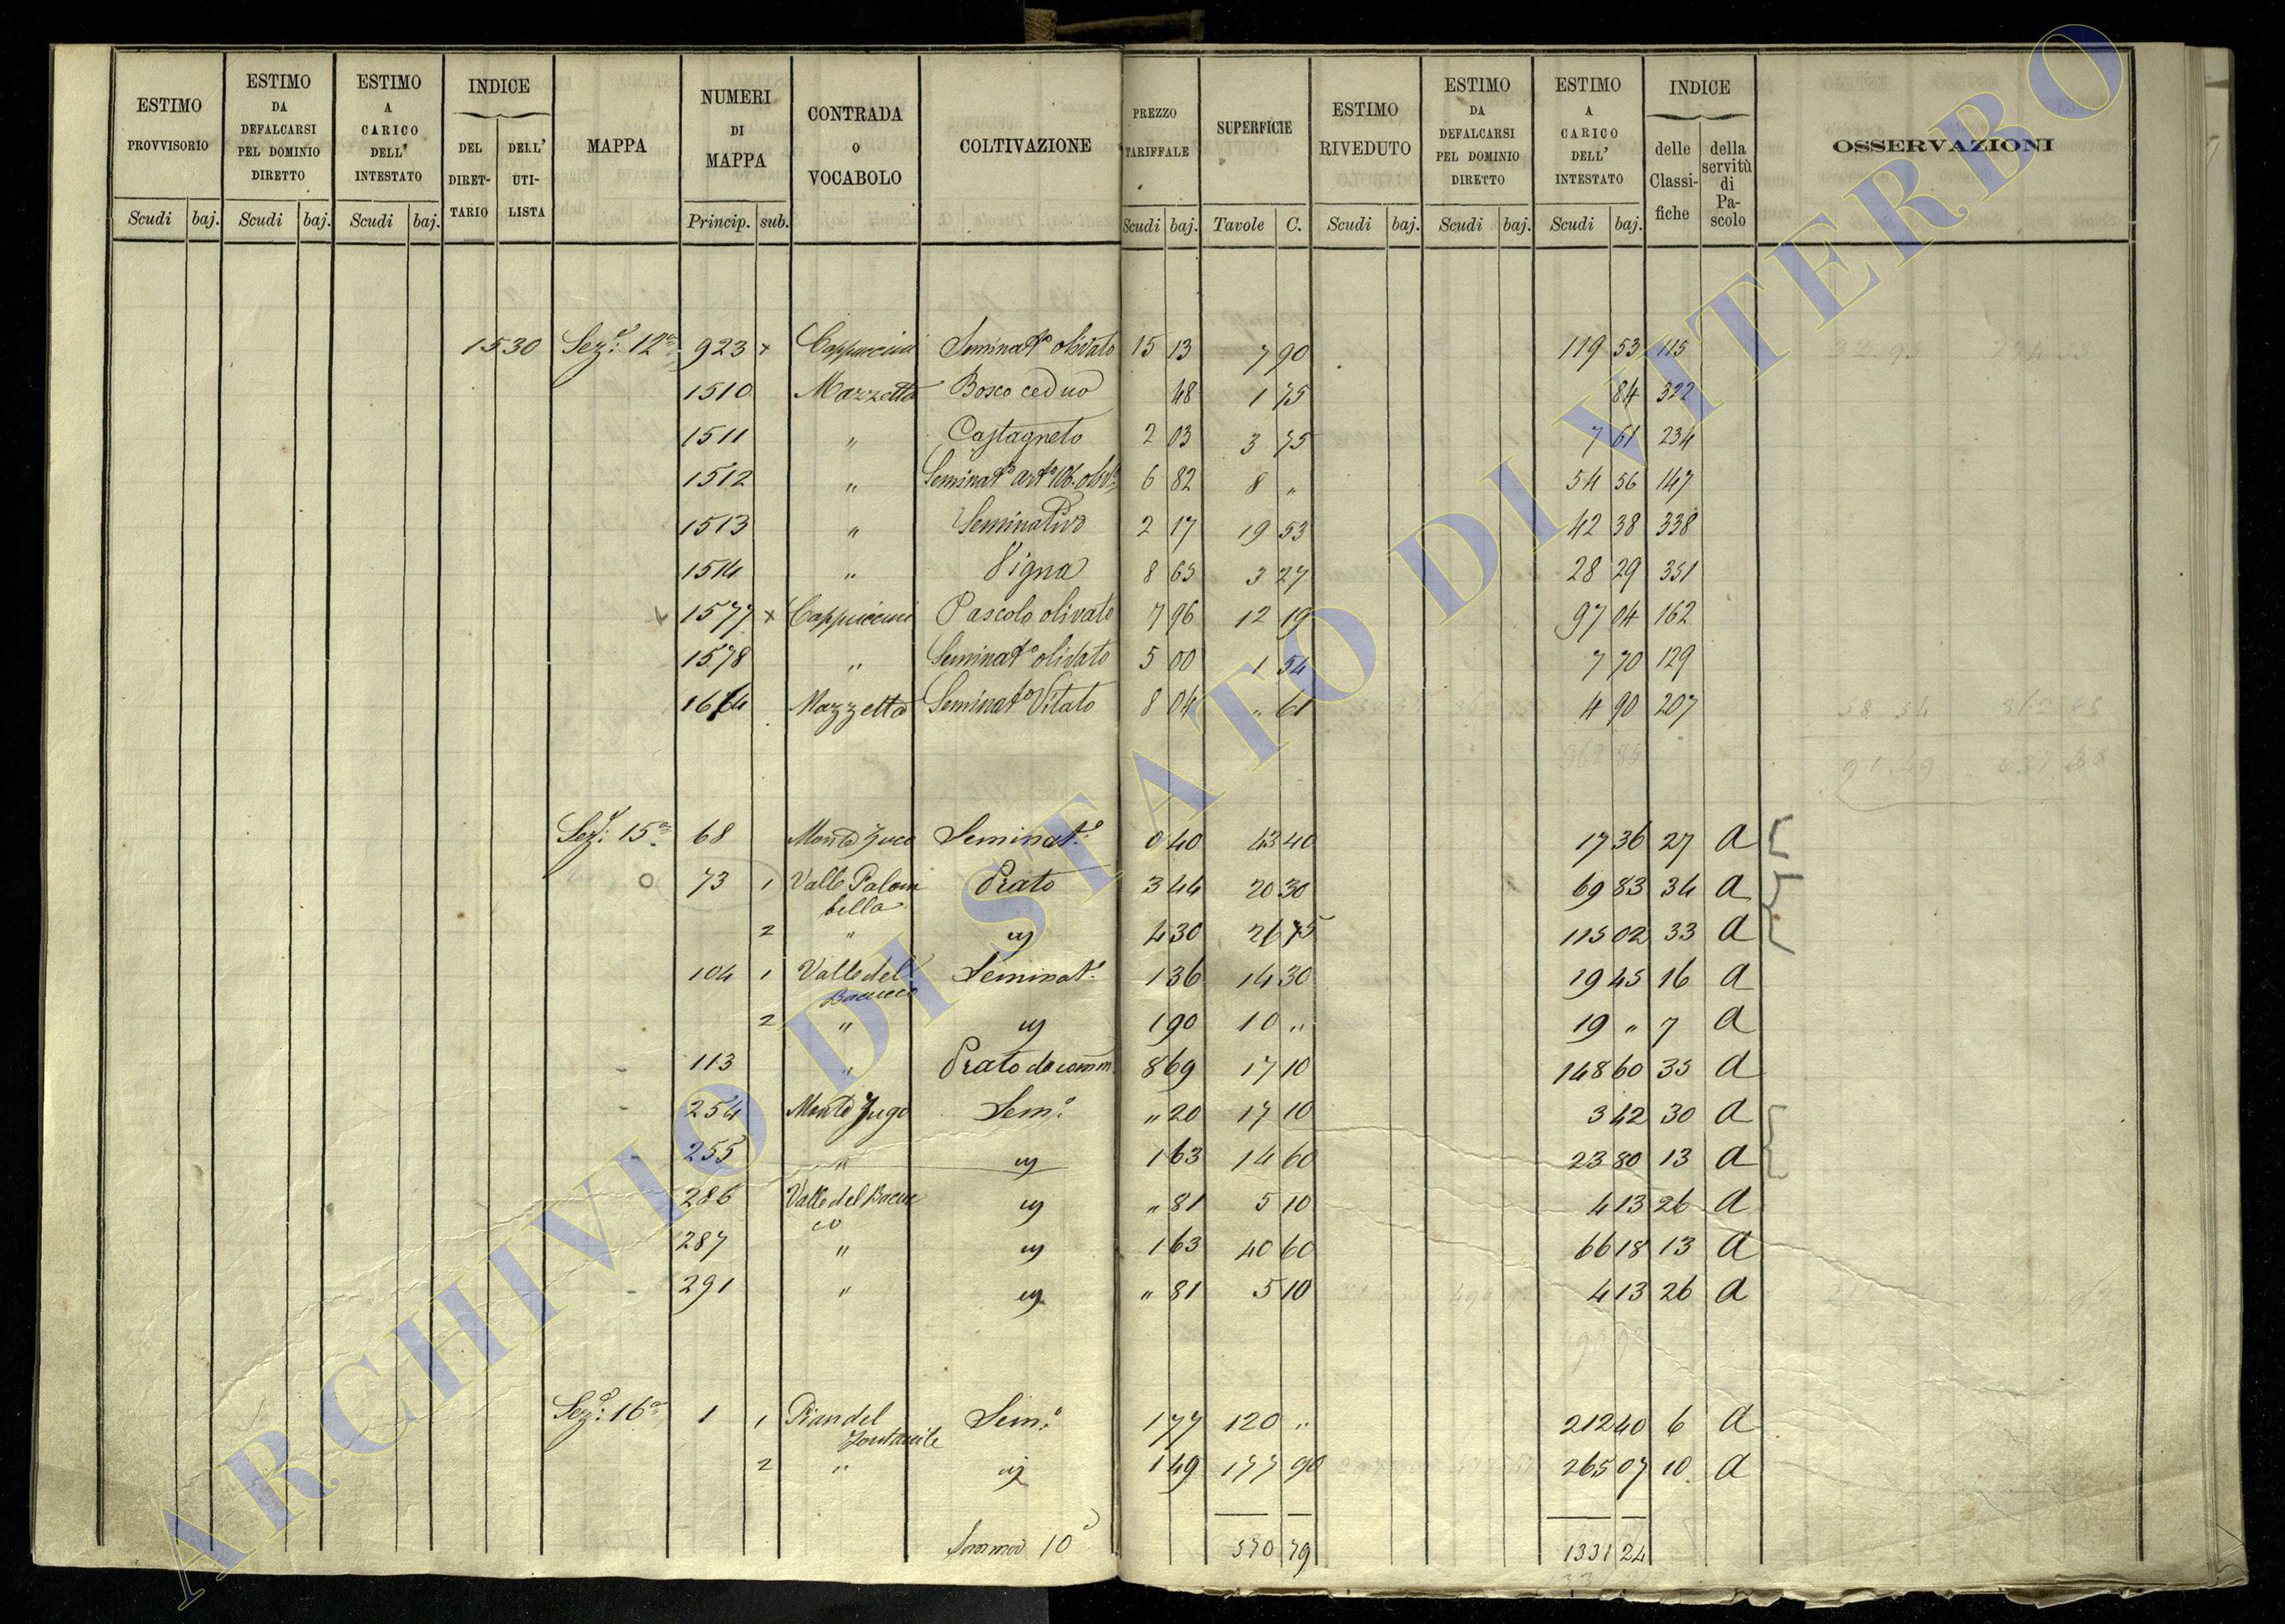 ESTIMO PROVVISORIO | ESTIMO DA DEFALCARSI PEL DOMINIO DIRETTO | ESTIMO A CARICO DELL' INTESTATO | INDICE DEL DIRETTARIO | DELL' UTILISTA | MAPPA | NUMERI DI MAPPA | CONTRADA O VOCABOLO | COLTIVAZIONE | PREZZO TARIFFALE | SUPERFICIE | ESTIMO RIVEDUTO | ESTIMO DA DEFALCARSI PEL DOMINIO DIRETTO | ESTIMO A CARICO DELL' INTESTATO | INDICE delle Classifiche | della servitù di Pascolo | OSSERVAZIONI
Scudi baj. Scudi baj. Scudi baj. Princip. sub. Scudi baj. Tavole C. Scudi baj. Scudi baj. Scudi baj.
1530 Sez.e 12a 923 x Cappuccini Seminato olivato 15 13 7 90 119 53 115
1510 Mazzetta Bosco ceduo 48 1 75 84 322
1511 " Castagneto 2 03 3 75 7 61 234
1512 " Seminato 6 82 8 " 54 56 147
1513 " Seminativo 2 17 19 53 42 38 338
1514 " Vigna 8 65 3 27 28 29 351
1577 x Cappuccini Pascolo olivato 7 96 12 19 97 04 162
1578 " Seminato olivato 5 00 1 54 7 70 129
1614 Mazzetta Seminato Vitato 8 04 " 61 4 90 207
362 85
Sez.e 15a 68 Monte Jugo Seminato 0 40 43 40 17 36 27 a
73 1 Valle Palombella Prato 3 44 20 30 69 83 34 a
2 " 4 30 26 75 115 02 33 a
104 1 Valle del Bacucco Seminato 1 36 14 30 19 45 16 a
2 " 1 90 10 " 19 " 7 a
113 " Prato da comm. 8 69 17 10 148 60 35 a
254 Monte Jugo Sem.o " 20 17 10 3 42 30 a
255 " 1 63 14 60 23 80 13 a
286 Valle del Bacucco " 81 5 10 4 13 26 a
287 " 1 63 40 60 66 18 13 a
291 " " 81 5 10 4 13 26 a
Sez.e 16a 1 1 Pian del Fontanile Sem.o 1 77 120 " 212 40 6 a
2 " 1 49 177 90 265 07 10 a
Somma 10 570 79 1331 24
ARCHIVIO DI STATO DI VITERBO